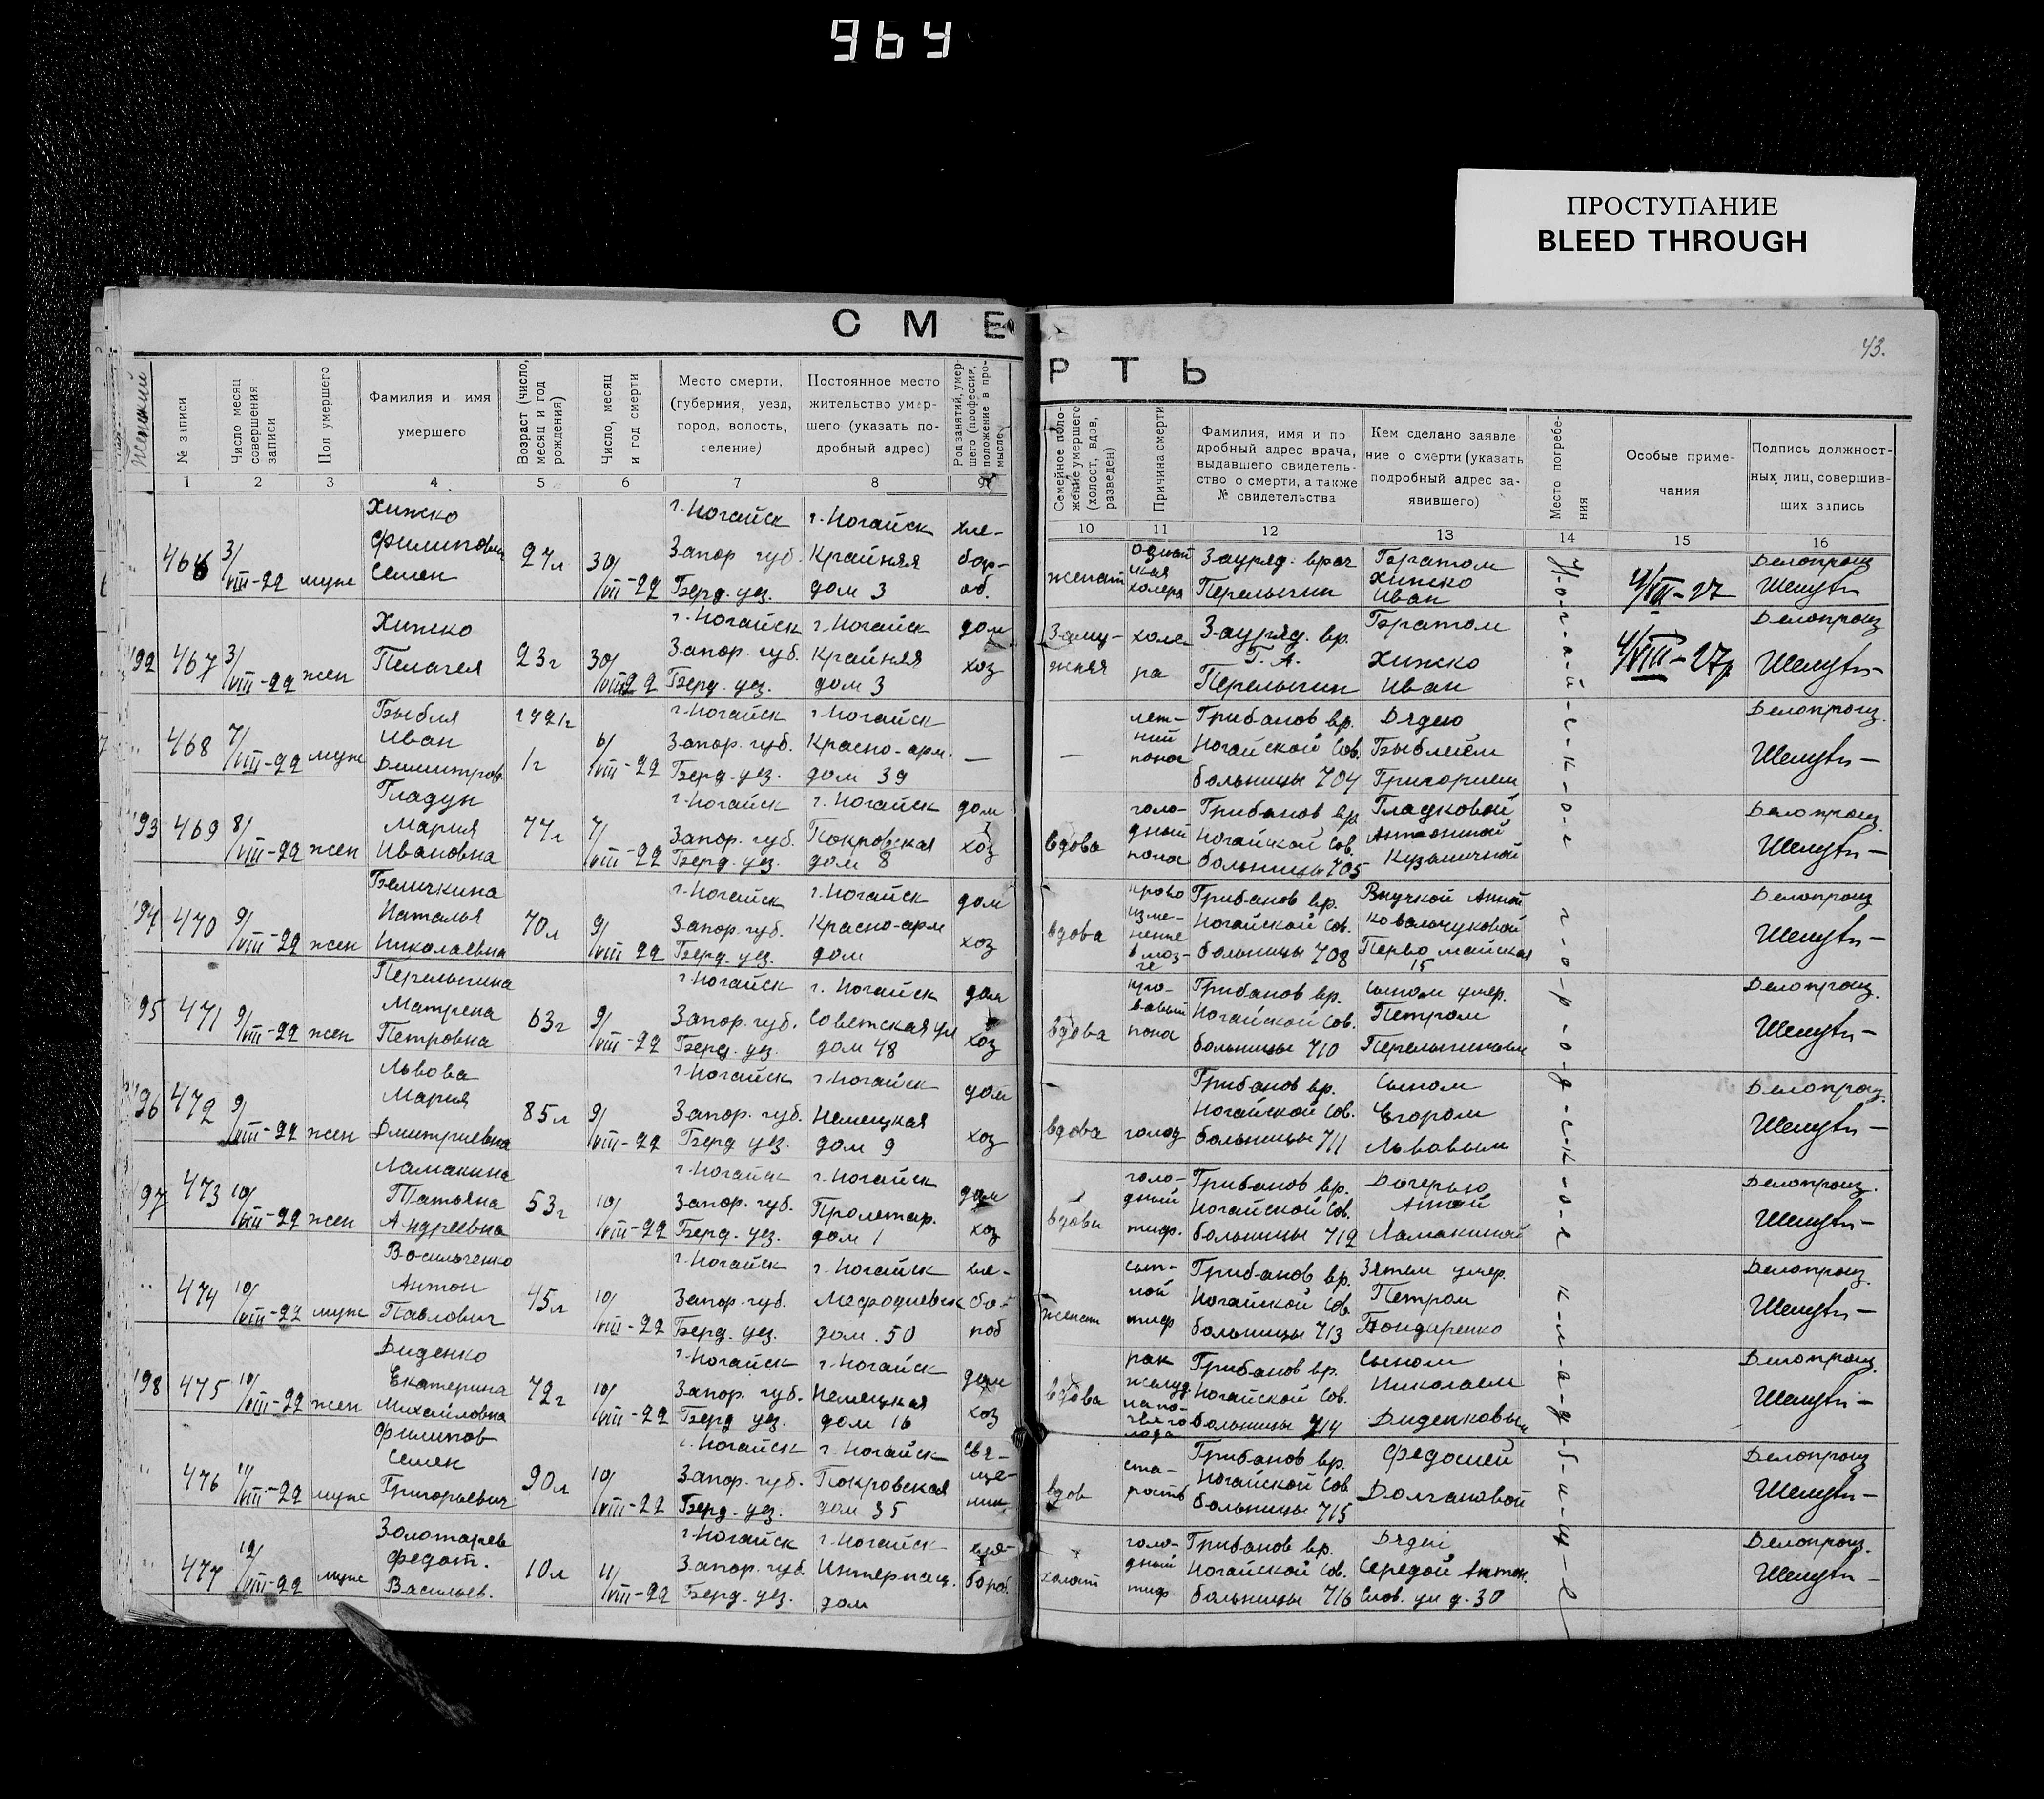 964
ПРОСТУПАНИЕ
BLEED THROUGH
СМЕ
РТЬ
43.
женский
№ записи
Число месяц
совершения
записи
Пол умершего
Фамилия и имя
умершего
Возраст (число,
месяц и год
рождения)
Число, месяц
и год смерти
Место смерти,
(губерния, уезд,
город, волость,
селение)
Постоянное место
жительство умер-
шего (указать по-
дробный адрес)
Род занятий, умер
шего (профессия,
положение в про-
мысле
Семейное поло-
жение умершего
(холост, вдов,
разведен)
Причина смерти
Фамилия, имя и по
дробный адрес врача,
выдавшего свидетель-
ство о смерти, а также
№ свидетельства
Кем сделано заявле
ние о смерти (указать
подробный адрес за-
явившего)
Место погребе-
ния
Особые приме-
чания
Подпись должност-
ных лиц, совершив-
ших запись
1 2 3 4 5 6 7 8 9
10 11 12 13 14 15 16
466 3/VIII-22 муж
Хижко
Филипович
Семен
27л
30/VII-22
г. Ногайск
Запор губ.
Берд. уез.
г. Ногайск
Крайняя
дом 3
хле-
бор-
об.
женат
холера
Зауряд. врач
Перелыгин
Братом
Хижко
Иван
4/VIII-27
Делопроиз
Шелудь
192 467 3/VIII-22 жен
Хижко
Пелагея
23г
30/VII 22
г. Ногайск
Запор. губ.
Берд. уез.
г. Ногайск
Крайняя
дом 3
дом
хоз
Заму-
жняя
холе-
ра
Зауряд. вр.
Г. А.
Перелыгин
Братом
Хижко
Иван
4/VIII-27г
Делопроиз
Шелудь
" 468 7/VIII-22 муж
Быбля
Иван
Димитров.
1921г
1г
6/VIII-22
г. Ногайск
Запор. губ.
Берд. уез.
г. Ногайск
Красно-арм.
дом 39
—
—
лет-
ний
понос
Грибанов вр.
Ногайской Сов.
больницы 704
Дядею
Быблеем
Григорием
Делопроиз.
Шелудь
193 469 8/VIII-22 жен
Гладун
Мария
Ивановна
77г
7/VIII-22
г. Ногайск
Запор. губ.
Берд. уез.
г. Ногайск
Покровская
дом 8
дом
хоз
вдова
голо-
дный
понос
Грибанов вр
Ногайской Сов.
больницы 705
Гладковой
Антониной
Кузьминичной
Делопроиз.
Шелудь
194 470 9/VIII-22 жен
Беличкина
Наталья
Николаевна
70л
9/VIII 22
г. Ногайск
Запор. губ.
Берд. уез.
г. Ногайск
Красно-арм
дом
дом
хоз
вдова
крово
изли-
яние
в моз-
ге
Грибанов вр.
Ногайской Сов.
больницы 708
Внучкой Анной
Ковальчуковой
Перво майская
15
Делопроиз
Шелудь
195 471 9/VIII-22 жен
Перелыгина
Матрена
Петровна
63г
9/VIII-22
г. Ногайск
Запор. губ.
Берд. уез.
г. Ногайск
Советская ул
дом 48
дом
хоз
вдова
кро-
вавый
понос
Грибанов вр.
Ногайской Сов.
больницы 710
Сыном умер.
Петром
Перелыгиным
Делопроиз.
Шелудь
196 472 9/VIII-22 жен
Львова
Мария
Дмитриевна
85л
9/VIII-22
г. Ногайск
Запор. губ.
Берд уез.
г. Ногайск
Немецкая
дом 9
дом
хоз
вдова
голод
Грибанов вр.
Ногайской Сов.
больницы 711
Сыном
Егором
Львовым
Делопроиз.
Шелудь
197 473 10/VIII-22 жен
Ламакина
Татьяна
Андреевна
53г
10/VIII-22
г. Ногайск
Запор. губ.
Берд. уез.
г. Ногайск
Пролетар.
дом 1
дом
хоз
вдова
голо-
дный
тиф.
Грибанов вр.
Ногайской Сов.
больницы 712
Дочерью
Анной
Ламакиной
Делопроиз.
Шелудь
" 474 10/VIII-22 муж
Васильченко
Антон
Павлович
45л
10/VIII-22
г. Ногайск
Запор. губ.
Берд. уез.
г. Ногайск
Мефодиевск
дом. 50
хле-
бо-
роб
женат
сып-
ной
тиф
Грибанов вр.
Ногайской Сов
больницы 713
Зятем умер.
Петром
Бондаренко
Делопроиз
Шелудь
198 475 10/VIII-22 жен
Диденко
Екатерина
Михайловна
72г
10/VIII-22
г. Ногайск
Запор. губ.
Берд уез.
г. Ногайск
Немецкая
дом 16
дом
хоз
вдова
рак
желуд.
Грибанов вр.
Ногайской Сов.
больницы 714
Сыном
Николаем
Диденковым
Делопроиз.
Шелудь
" 476 11/VIII-22 муж
Филипов
Семен
Григорьевич
90л
10/VIII-22
г. Ногайск
Запор. губ.
Берд. уез.
г. Ногайск
Покровская
дом 35
свя-
ще-
ник
вдов
ста-
рость
Грибанов вр.
Ногайской Сов
больницы 715
Федосией
Долгановой
Делопроиз
Шелудь
" 477 12/VIII-22 муж
Золотарев
Федот.
Васильев.
10л
11/VIII-22
г. Ногайск
Запор. губ.
Берд. уез.
г. Ногайск
Интернац.
дом
хле-
бороб.
холост
голо-
дный
тиф
Грибанов вр.
Ногайской Сов.
больницы 716
Дядей
Середой Антон.
Слов. ул д. 30
Делопроиз.
Шелудь
Н-о-г-а-й-с-к-о-е г-о-р-о-д-с-к-о-е к-л-а-д-б-и-щ-е